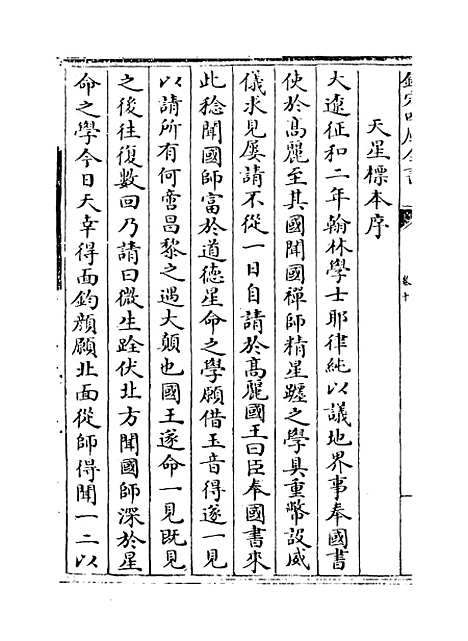 欽定四庫全書
卷十
天星標本序
大遼征和二年翰林學士耶律純以議地界事奉國書
使於高麗至其國聞國禪師精星躔之學具重幣設威
儀求見屢請不從一日自請於高麗國王曰臣奉國書來
此稔聞國師富於道德星命之學願借玉音得遂一見
以請所有何啻昌黎之遇大顛也國王遂命一見既見
之後往復數回乃請曰微生跧伏北方聞國師深於星
命之學今日天幸得面鈞顔願北面從師得聞一二以